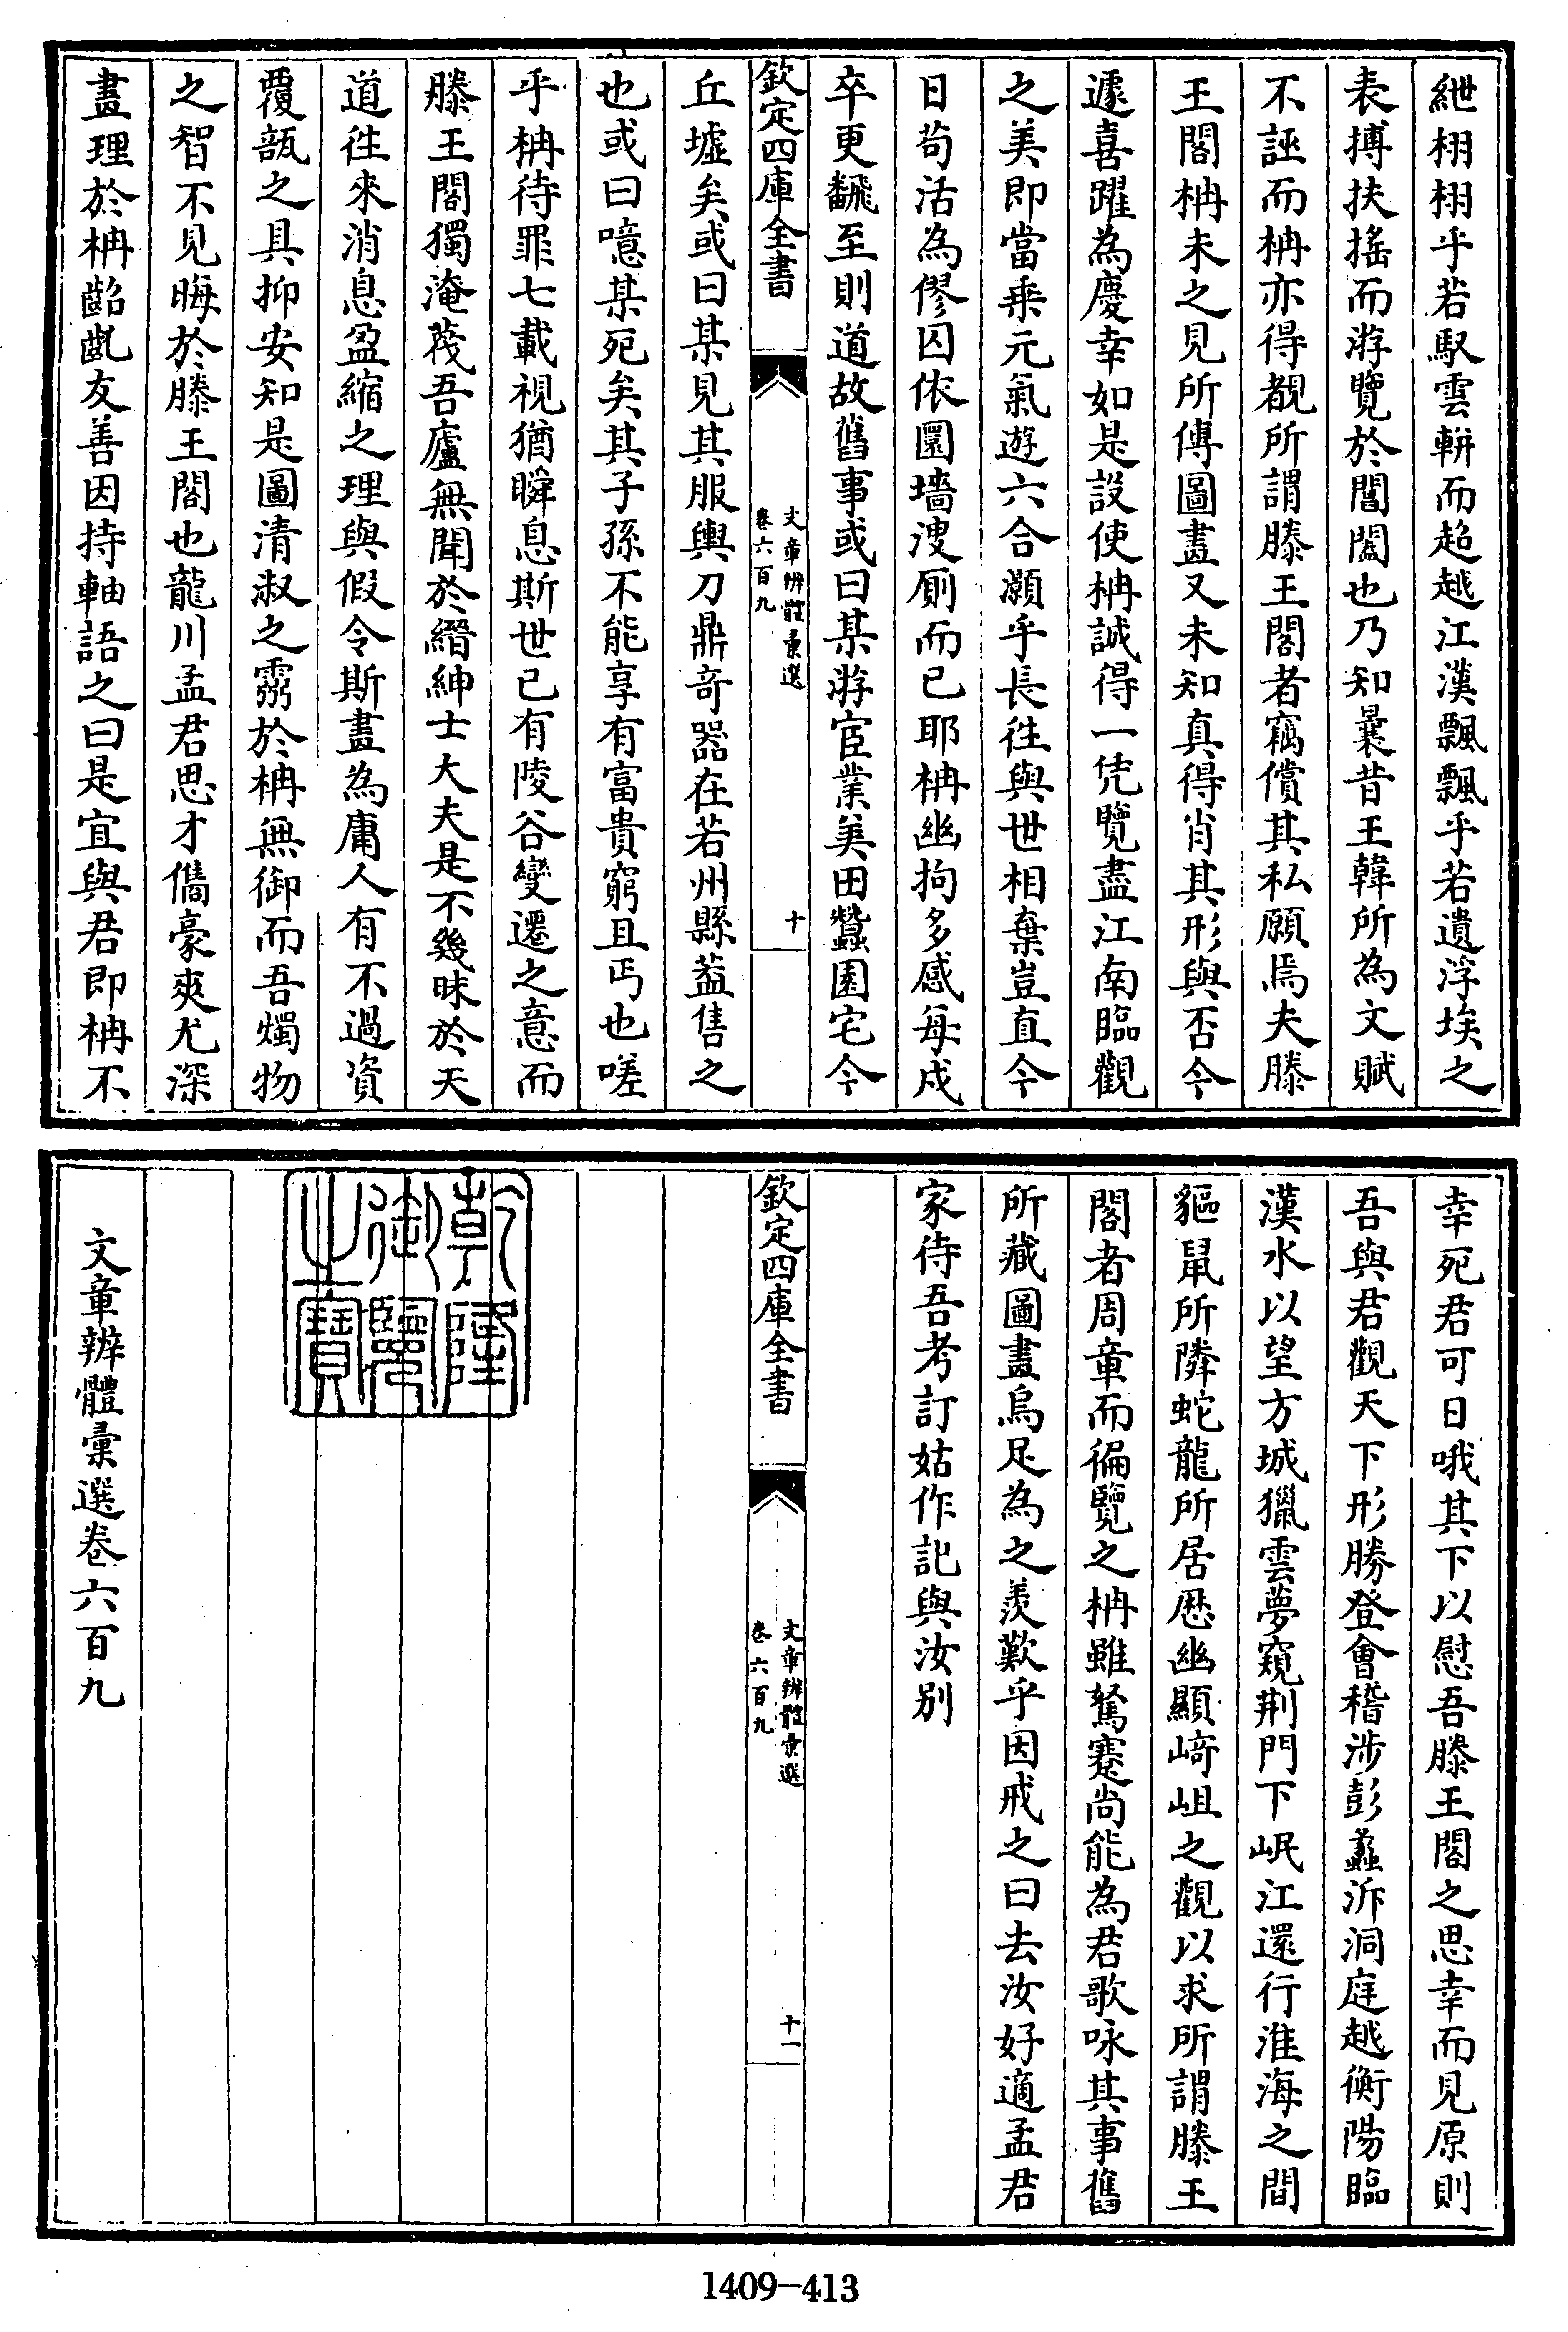 紲栩栩乎若馭雲軿而超越江漢飄飄乎若遺浮埃之
表搏扶搖而游覽於閶闔也乃知曩昔王韓所為文賦
不誣而柟亦得覩所謂滕王閣者竊償其私願焉夫滕
王閣柟未之見所傳圖畫又未知真得肖其形與否今
遽喜躍為慶幸如是設使柟誠得一凭覽盡江南臨觀
之美即當乘元氣遊六合灝乎長往與世相棄豈直今
日茍活為僇囚依圜墻溲厠而已耶柟幽拘多感每戍
卒更飜至則道故舊事或曰某游宦業美田蠶園宅今
欽定四庫全書
文章辨體彙選
卷六百九
十
丘墟矣或曰某見其服輿刀鼎奇器在若州縣葢售之
也或曰噫某死矣其子孫不能享有富貴窮且丐也嗟
乎柟待罪七載視猶瞬息斯世已有陵谷變遷之意而
滕王閣獨淹茂吾廬無聞於縉紳士大夫是不幾昧於天
道往來消息盈縮之理與假令斯畫為庸人有不過資
覆瓿之具抑安知是圖清淑之霛於柟無御而吾燭物
之智不見晦於滕王閣也龍川孟君思才儁豪爽尤深
畫理於柟齠齓友善因持軸語之曰是宜與君即柟不
幸死君可日哦其下以慰吾滕王閣之思幸而見原則
吾與君觀天下形勝登會稽涉彭蠡泝洞庭越衡陽臨
漢水以望方城獵雲夢窺荆門下岷江還行淮海之間
貙鼠所隣蛇龍所居歴幽顯崎岨之觀以求所謂滕王
閣者周章而徧覽之柟雖駑蹇尚能為君歌咏其事舊
所藏圖畫烏足為之羨歎乎因戒之曰去汝好適孟君
家待吾考訂姑作記與汝别
欽定四庫全書
文章辨體彙選
卷六百九
十一
乾隆御覽之寶
文章辨體彙選卷六百九
1409-413